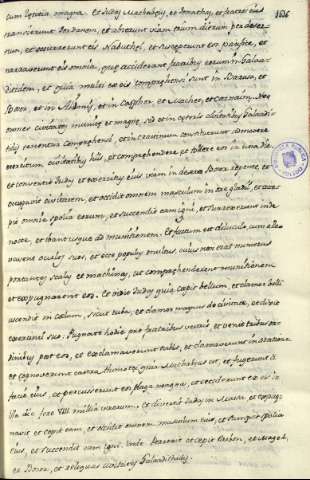 cum letitia magna. et Judas Machabeus, et Jonathas, et fratres eius
transierunt Jordanem, et abierunt viam trium dierum per deser-
tum, et occurrerunt eis Nabuthei, et susceperunt eos pacifice, et
narraverunt eis omnia, que acciderant fratribus eorum in Galaa-
ditidem, et quia multi ex eis comprehensi sunt in Barasa, et
Bosor, et in Alimis, et in Casphor et Macheth, et Carnaim, hec
omnes civitates munite, et magne, sed et in ceteris civitatibus Galaaditi-
dis tenentur comprehensi, et in crastinum constituerunt admovere
exercitum civitatibus his, et comprehendere et tollere eos in una die
et convertit Judas et exercitus eius viam in desertum Bosor repente, et
occupavit civitatem, et occidit omnem masculum in ore gladii, et acce-
pit omnia spolia eorum, et succendit eam igni, et surrexerunt inde
nocte, et ibant usque ad munitionem. et factum est diluculo, cum alle-
vassent oculos suos, et ecce populus multus, cuius non erat numerus
portantes scalas et machinas, ut comprehenderent munitionem
et expugnarent eos. et vidit Judas quia cepit bellum, et clamor belli
ascendit in coelum, sicut tuba, et clamor magnus de civitate, et dixit
exercitui suo. Pugnate hodie pro fratribus vestris, et venit tribus or-
dinibus post eos, et exclamaverunt tubis, et clamaverunt in oratione
et cognoverunt castra Timothei quia Machabeus est, et fugerunt a
facie eius, et percusserunt eos plaga magna, et ceciderunt ex eis in
illa die fere VIII millia virorum. et divertit Judas in Maspha, et expug-
navit et cepit eam, et occidit omnem masculum eius, et sumpsit spolia
eius, et succendit eam igni. Inde perrexit et cepit Casbon, et Mageth,
et Bosor, et reliquas civitates Galaaditidis.